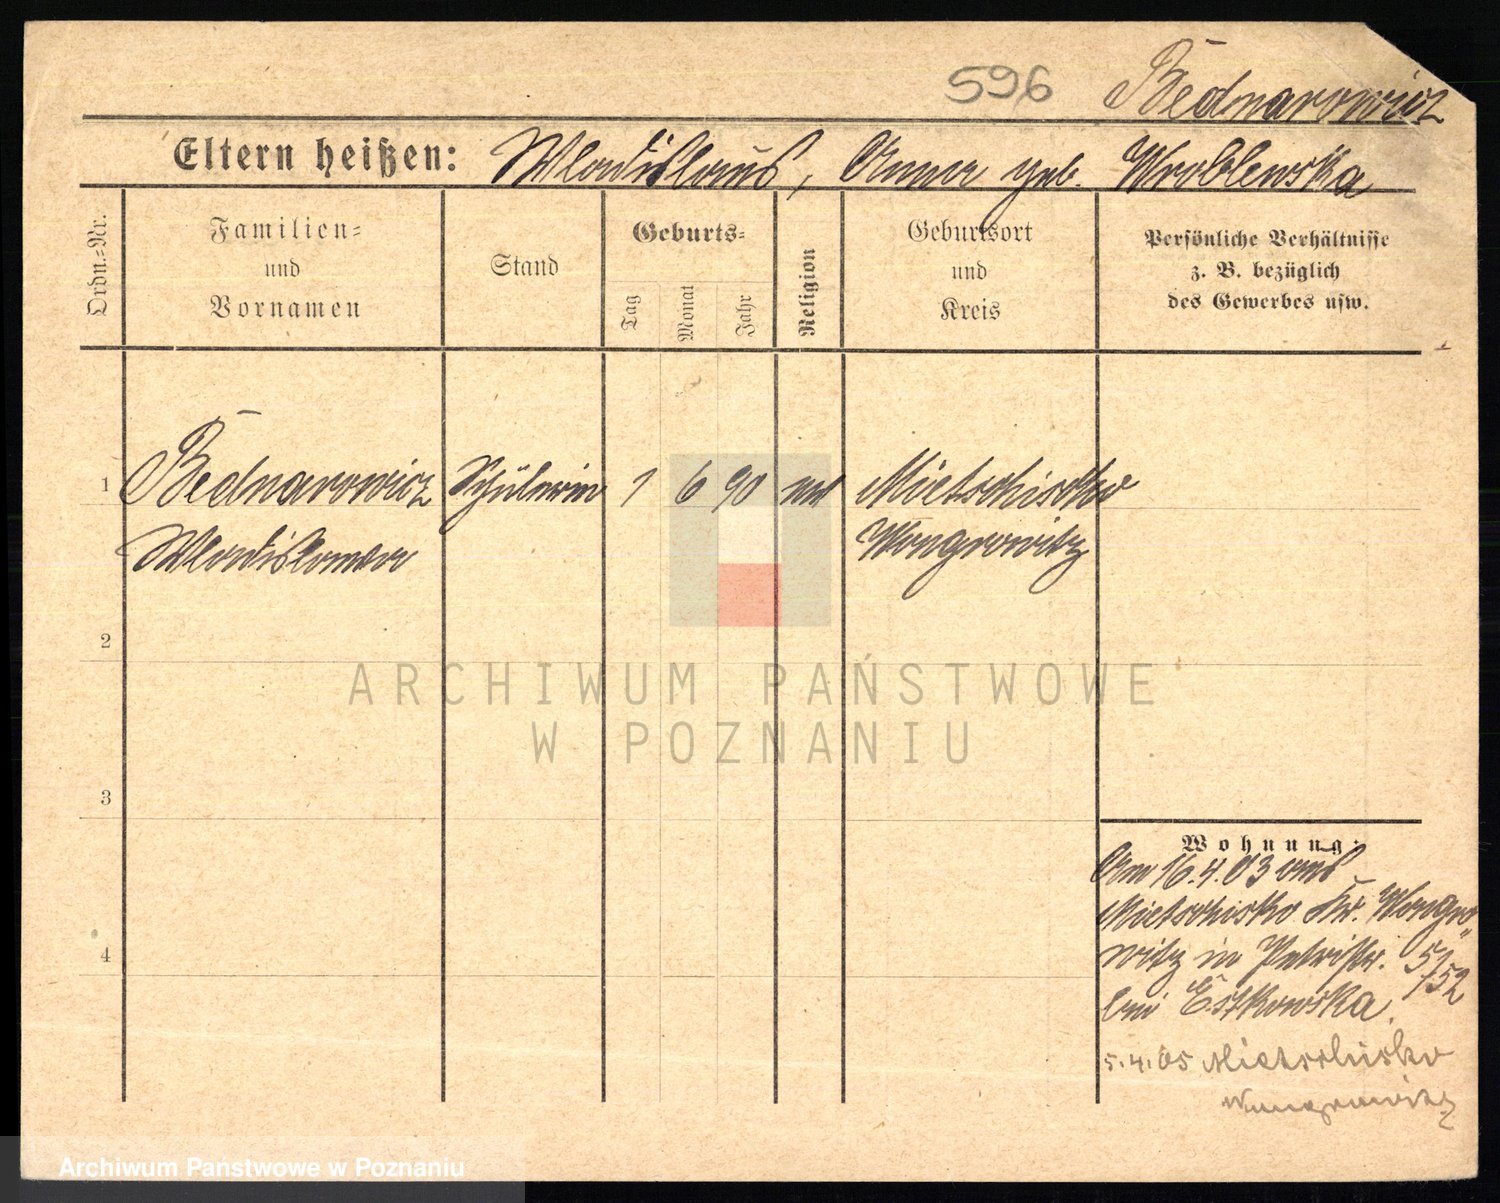 596 Bednarowicz
Eltern heißen: Wladislaus, Anna geb. Wroblewska
Ordn.-Nr.
Familien-
und
Vornamen
Stand
Geburts-
Tag
Monat
Jahr
Religion
Geburtsort
und
Kreis
Persönliche Verhältnisse
z. B. bezüglich
des Gewerbes usw.
1 Bednarowicz Schülerin 1 6 90 Mietschisko
Wladislawa Wongrowitz
2
3
4
Wohnung:
Am 16.4.03 aus
Mietschisko Kr. Wongro-
witz in Petristr. 51/52
bei Estkowska.
5.4.05 Mietschisko
Wongrowitz
ARCHIWUM PAŃSTWOWE
W POZNANIU
Archiwum Państwowe w Poznaniu